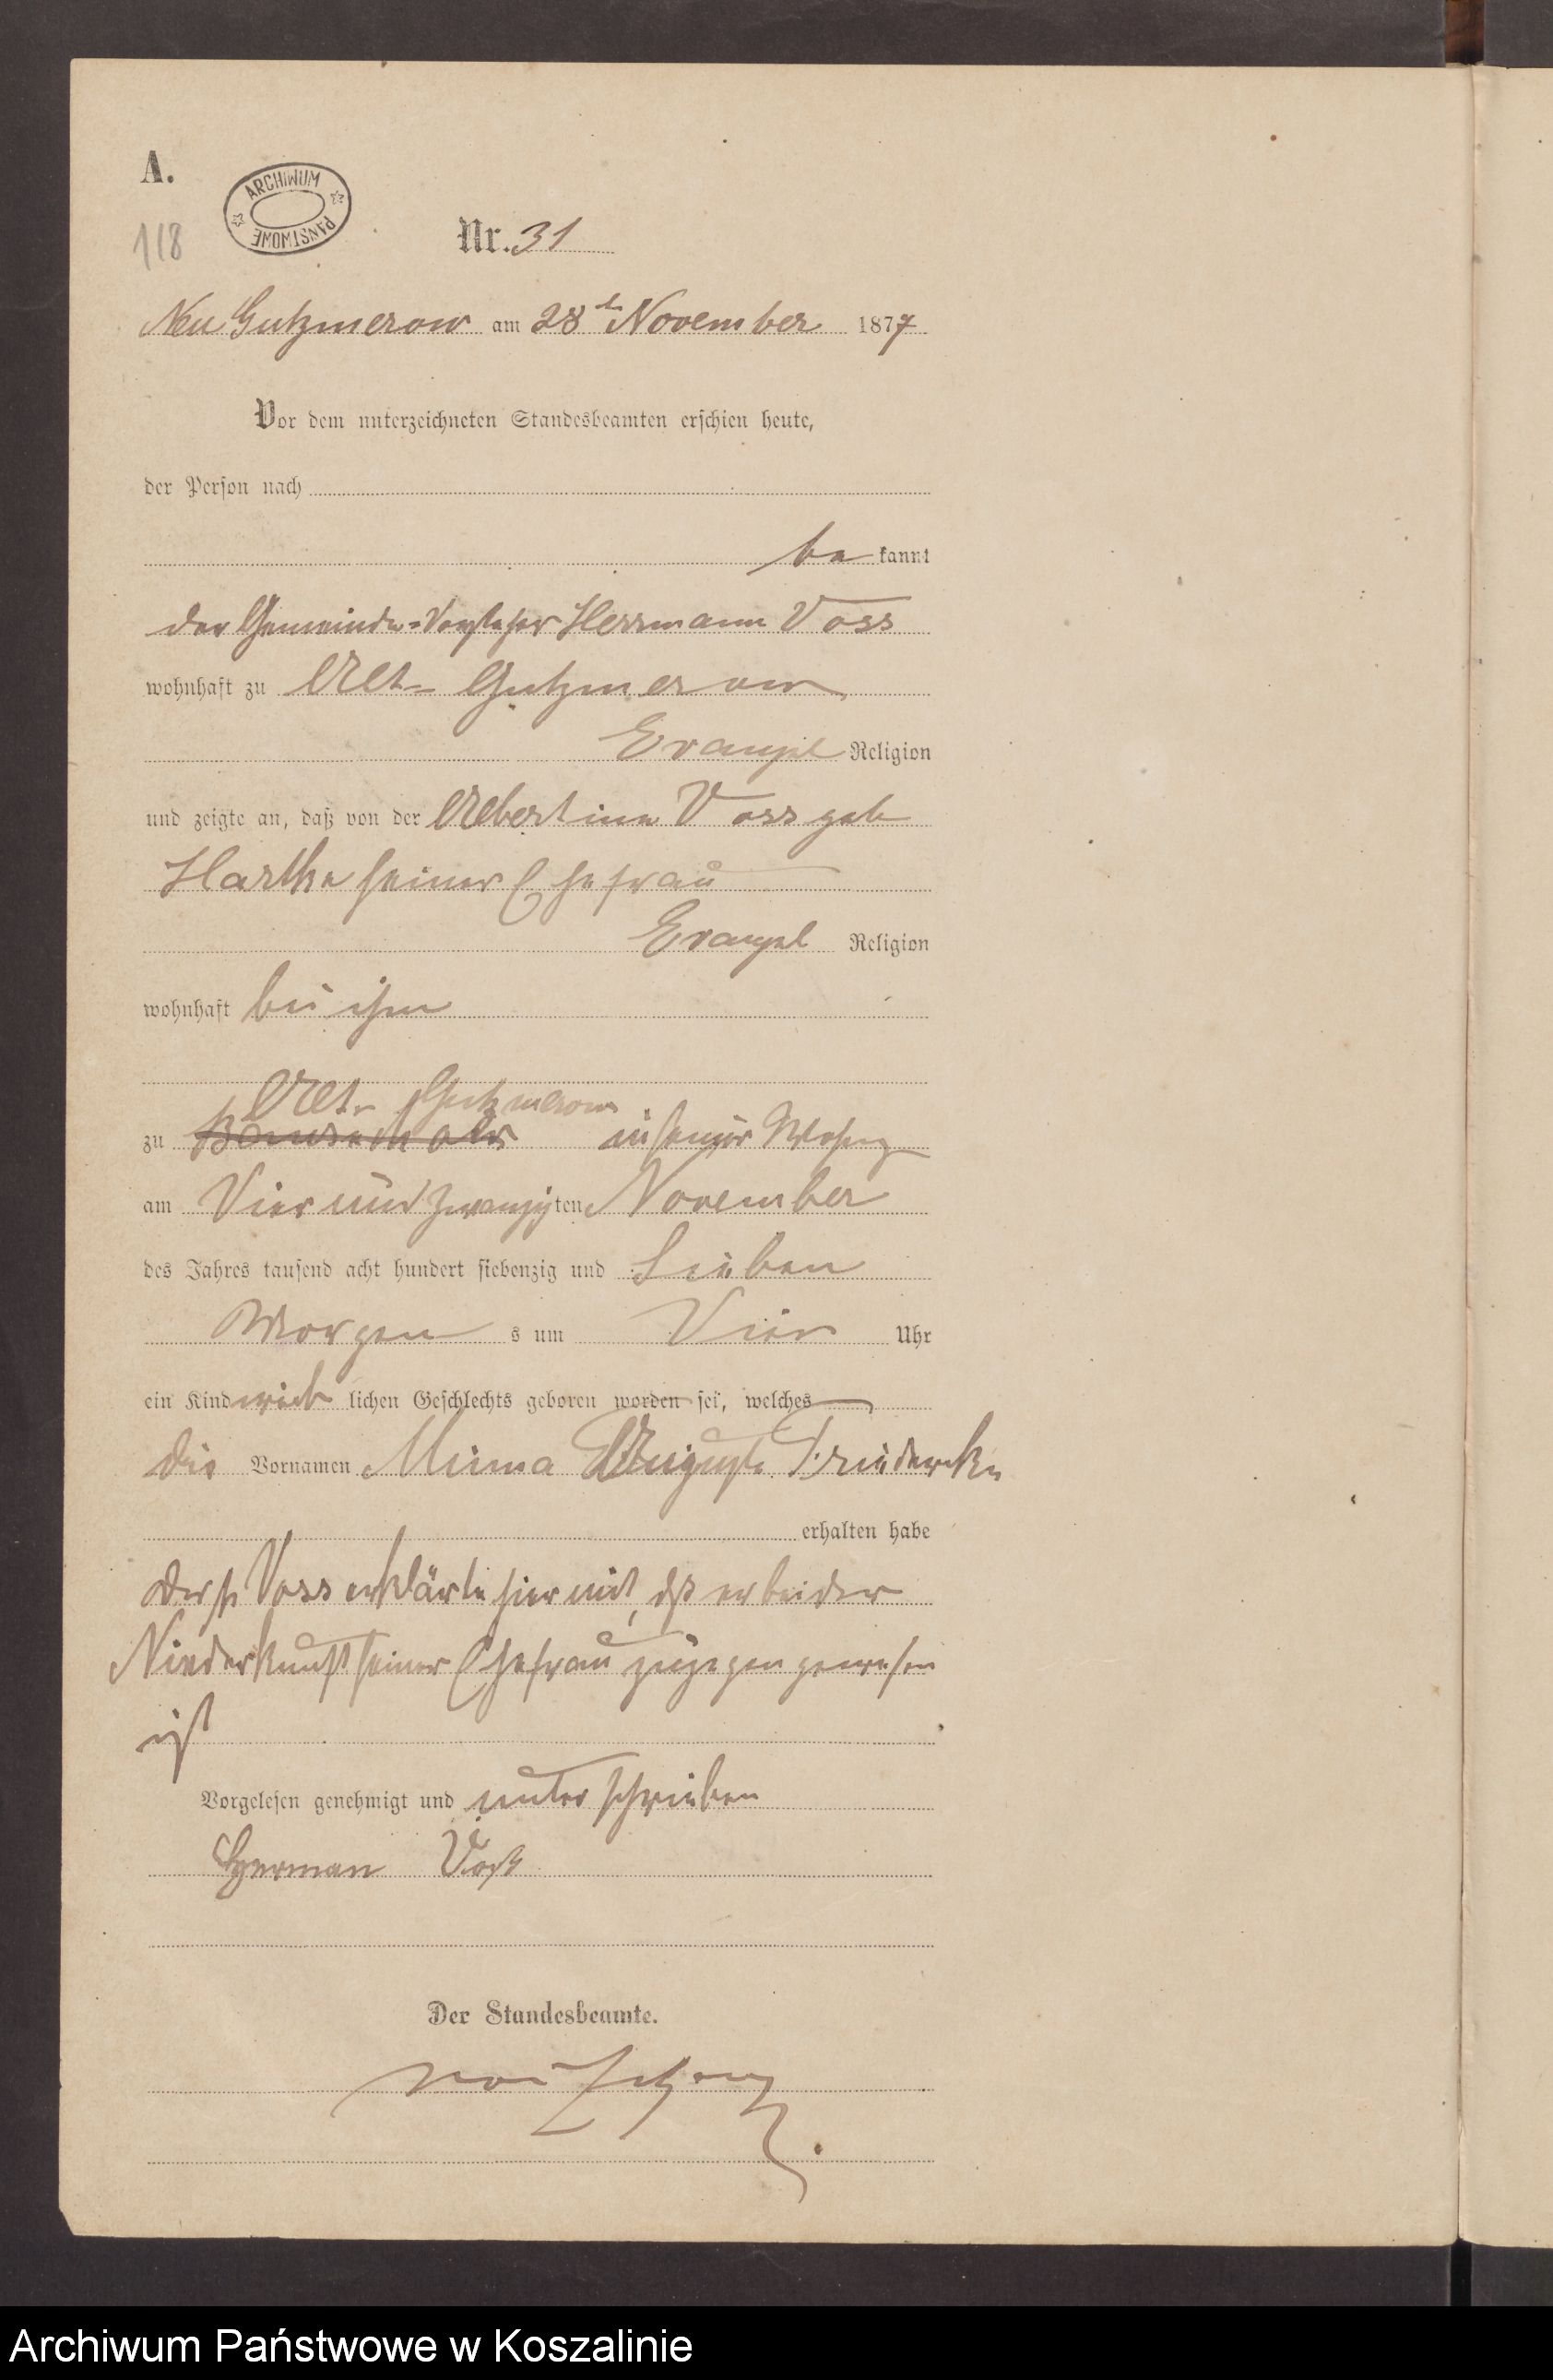 A.
ARCHIWUM PAŃSTWOWE
118
Nr. 31
Neu Gutzmerow am 28t November 1877
Vor dem unterzeichneten Standesbeamten erschien heute,
der Person nach
be kannt
der Gemeinde-Vorsteher Herrmann Voss
wohnhaft zu Alt- Gutzmerow
Evangel Religion
und zeigte an, daß von der Albertine Voss geb
Harthe seiner Ehefrau
Evangel Religion
wohnhaft bei ihm
Alt- Gutzmerow
zu in seiner
am Vier und zwanzigten November
des Jahres tausend acht hundert siebenzig und Sieben
Morgen s um Vier Uhr
ein Kind weib lichen Geschlechts geboren worden sei, welches
die Vornamen Minna Auguste Friedericke
erhalten habe
Voss erklärte hiermit, dß er bei der
Niederkunft seiner Ehefrau zugegen gewesen
ist
Vorgelesen genehmigt und unterschrieben
Herman Voß
Der Standesbeamte.
Archiwum Państwowe w Koszalinie